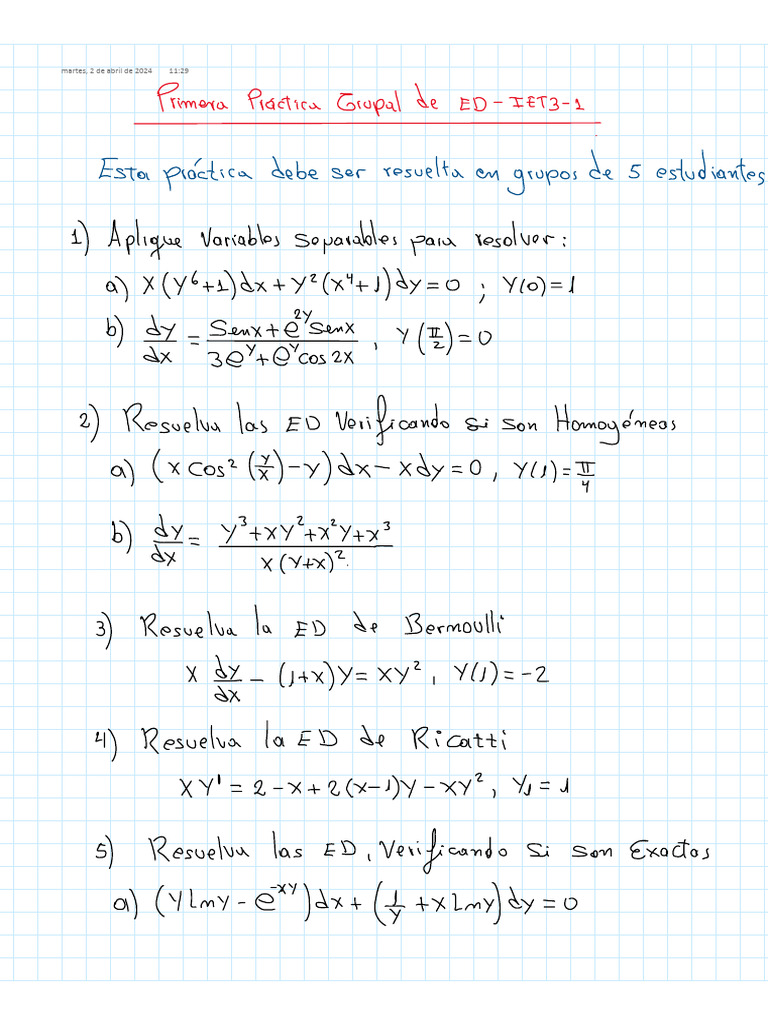 martes, 2 de abril de 2024 11:29
Primera Práctica Grupal de ED-IET3-1
Esta práctica debe ser resuelta en grupos de 5 estudiantes
1) Aplique Variables Separables para resolver:
a) x(y⁶+1)dx+y²(x⁴+1)dy=0 ; y(0)=1
b) dy/dx = (Senx+e^{2y}senx)/(3e^y+e^y cos2x), y(π/2)=0
2) Resuelva las ED Verificando si son Homogéneas
a) (x cos²(y/x)-y)dx-xdy=0, y(1)=π/4
b) dy/dx = (y³+xy²+x²y+x³)/(x(y+x)²)
3) Resuelva la ED de Bermoulli
x dy/dx - (1+x)y=xy², y(1)=-2
4) Resuelva la ED de Ricatti
xy'=2-x+2(x-1)y-xy², y₁=1
5) Resuelva las ED, Verificando si son Exactas
a) (yLny-e^{-xy})dx+(1/y+xLny)dy=0